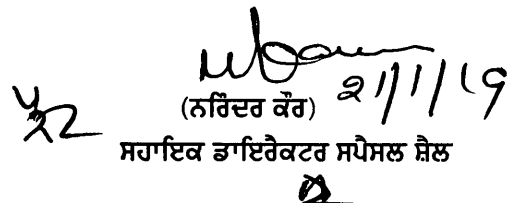 21/1/19
(ਨਰਿੰਦਰ ਕੌਰ)
ਸਹਾਇਕ ਡਾਇਰੈਕਟਰ ਸਪੈਸਲ ਸ਼ੈਲ